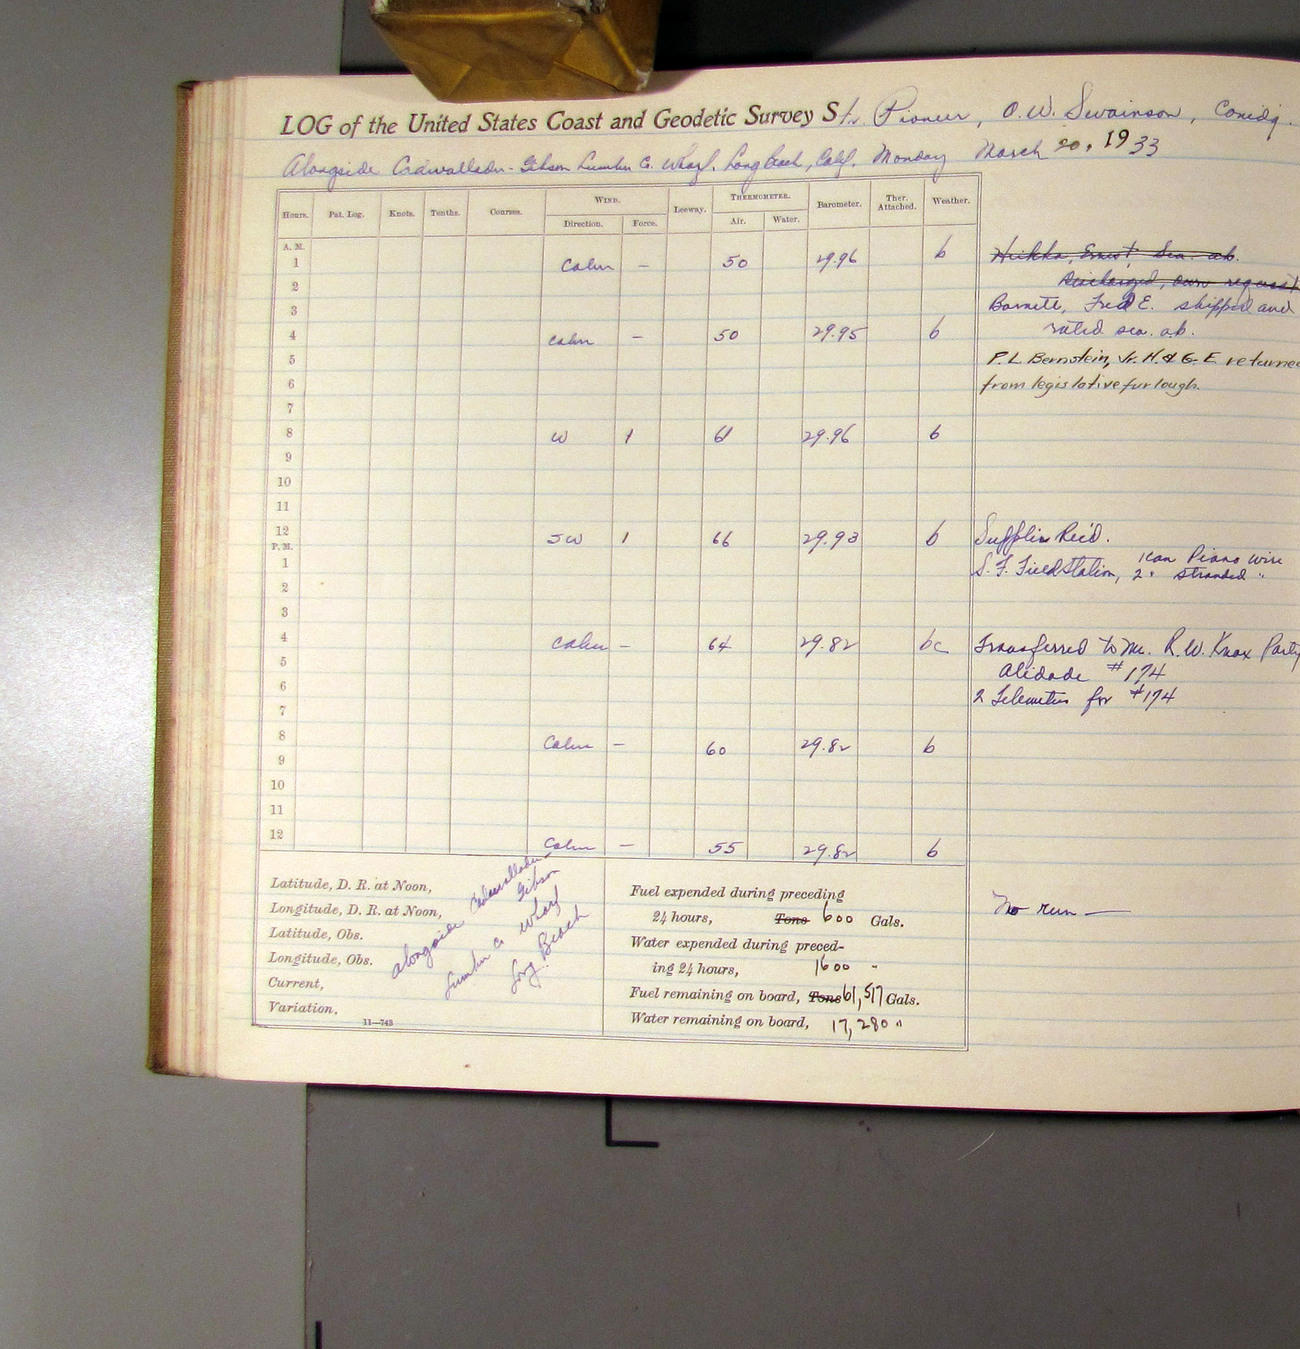 LOG of the United States Coast and Geodetic Survey Str. Pioneer, O. W. Swainson, Comdg.
Alongside Cadwallader-Gibson Lumber Co. Wharf, Long Beach, Calif. Monday March 20, 1933
Hours. Pat. Log. Knots. Tenths. Courses. WIND. Leeway. THERMOMETER. Barometer. Ther. Attached. Weather.
Direction. Force. Air. Water.
A. M.
1 Calm – 50 29.96 b Heikka, Ernest, Sea. ab.
2 Discharged, own request
3 Barnett, Fred E. shipped and
4 calm – 50 29.95 b rated sea. a.b.
5 P. L. Bernstein, Jr. H. & G. E returned
6 from legislative furlough.
7
8 W 1 61 29.96 b
9
10
11
12 SW 1 66 29.93 b Supplies Rec'd.
P. M.
1 S. F. Field Station, 1 can Piano Wire
2 2 " Stranded "
3
4 Calm – 64 29.82 bc Transferred to Mr. R. W. Knox Party
5 Alidade #174
6 2 Telemeters for #174
7
8 Calm – 60 29.82 b
9
10
11
12 Calm – 55 29.82 b
Latitude, D. R. at Noon,
Longitude, D. R. at Noon,
Latitude, Obs.
Longitude, Obs.
Current,
Variation,
11—743
alongside Cadwallader-
Gibson
Lumber Co wharf
Long Beach
Fuel expended during preceding
24 hours, Tons 600 Gals.
Water expended during preced-
ing 24 hours, 1600 "
Fuel remaining on board, Tons 61,517 Gals.
Water remaining on board, 17,280 "
No run —